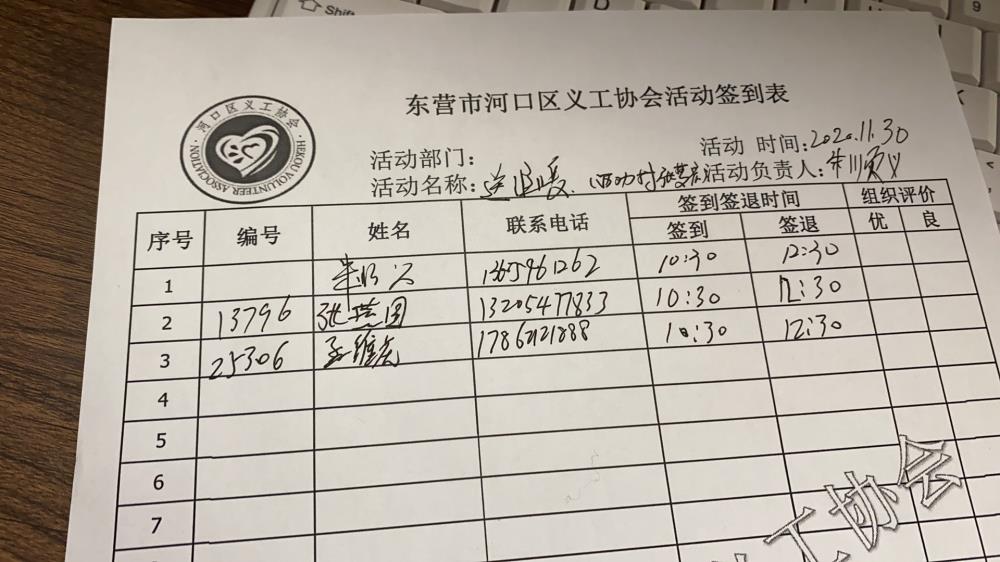 Shift
东营市河口区义工协会活动签到表
河口区义工协会
HEKOU VOLUNTEER ASSOCIATION
活动部门:
活动 时间:2020.11.30
活动名称:送温暖
活动负责人:
序号 编号 姓名 联系电话 签到签退时间 组织评价
签到 签退 优 良
1 10:30 12:30
2 13796 13205477833 10:30 12:30
3 25306 17862121888 10:30 12:30
4
5
6
7
工协会